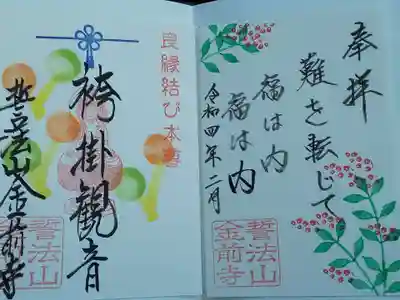 奉拝
難を転じて
福は内
福は内
令和四年二月
誓法山
金前寺
良縁結び本尊
袴掛観音
誓法山金前寺
誓法山